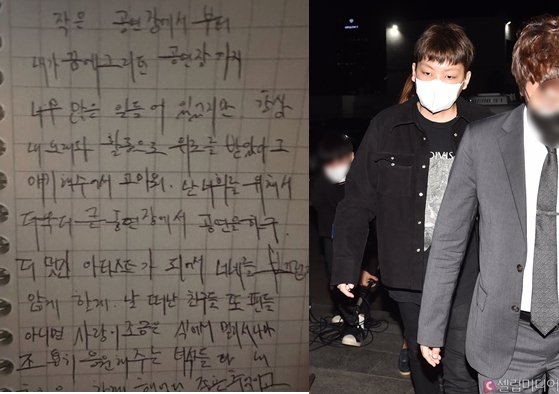 작은 공연장에서 부터
내가 꿈에 그리던 공연장 까지
너무 많은 일들이 있었지만 항상
내 노래와 활동으로 위로를 받았다고
얘기해줘서 고마워. 난 너희를 위해서
더욱더 큰 공연장에서 공연을 하고
더 멋진 아티스트가 되어서 너네를
않게 할게. 날 떠난 친구들 또 팬들
아니면 사랑이 조금은 식어서 멀어져서나마
조용히 응원해주는 너희들 다 내
셀럽미디어